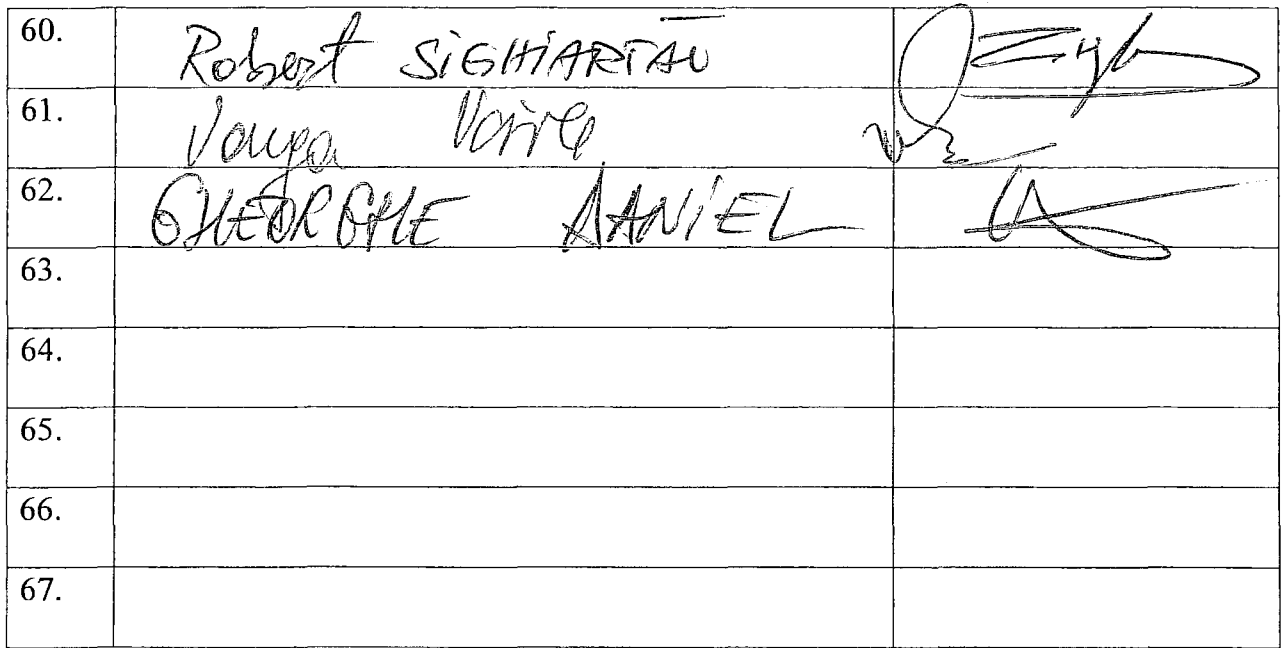 60. Robert SiGHiARTĂU
61. Vanga
62. GHEORGHE DANiEL
63.
64.
65.
66.
67.